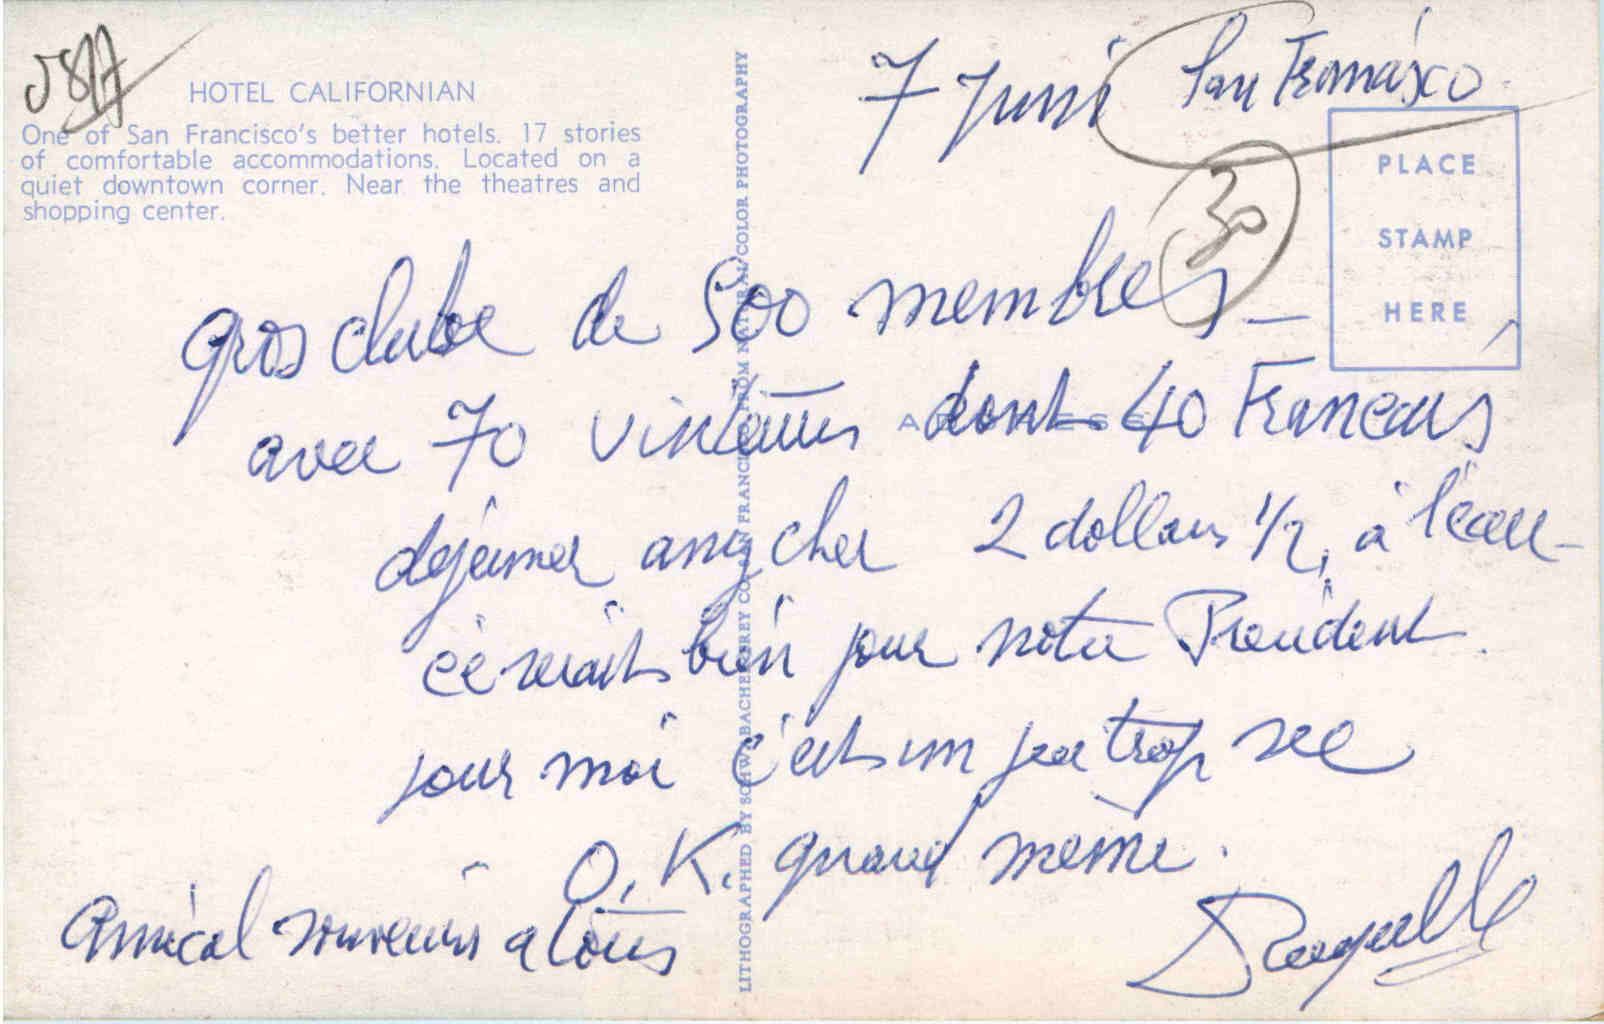 HOTEL CALIFORNIAN
One of San Francisco's better hotels. 17 stories
of comfortable accommodations. Located on a
quiet downtown corner. Near the theatres and
shopping center.
LITHOGRAPHED BY SCHWABACHER-FREY CO., SAN FRANCISCO, FROM NATURAL COLOR PHOTOGRAPHY
PLACE
STAMP
HERE
ADDRESS
7 Juni San Francisco
30
gros clube de 500 membres _
avec 70 dont 40 Francais
dejeuner cher 2 dollars 1/2, à l'eau -
bien pour notre President.
pour moi c'est un peu trop sec
O.K. quand meme.
Amical souvenir a tous